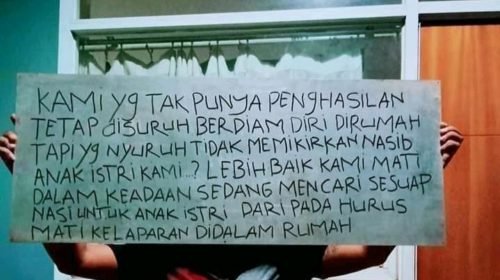 KAMI yg TAK PUNYA PENGHASILAN
TETAP diSURUH BERDIAM DIRI DIRUMAH
TAPI yg NYURUH TIDAK MEMIKIRKAN NASIB
ANAK ISTRI KAMI..? LEBIH BAIK KAMI MATI
DALAM KEADAAN SEDANG MENCARI SESUAP
NASI UNTUK ANAK ISTRI DARI PADA HURUS
MATI KELAPARAN DIDALAM RUMAH